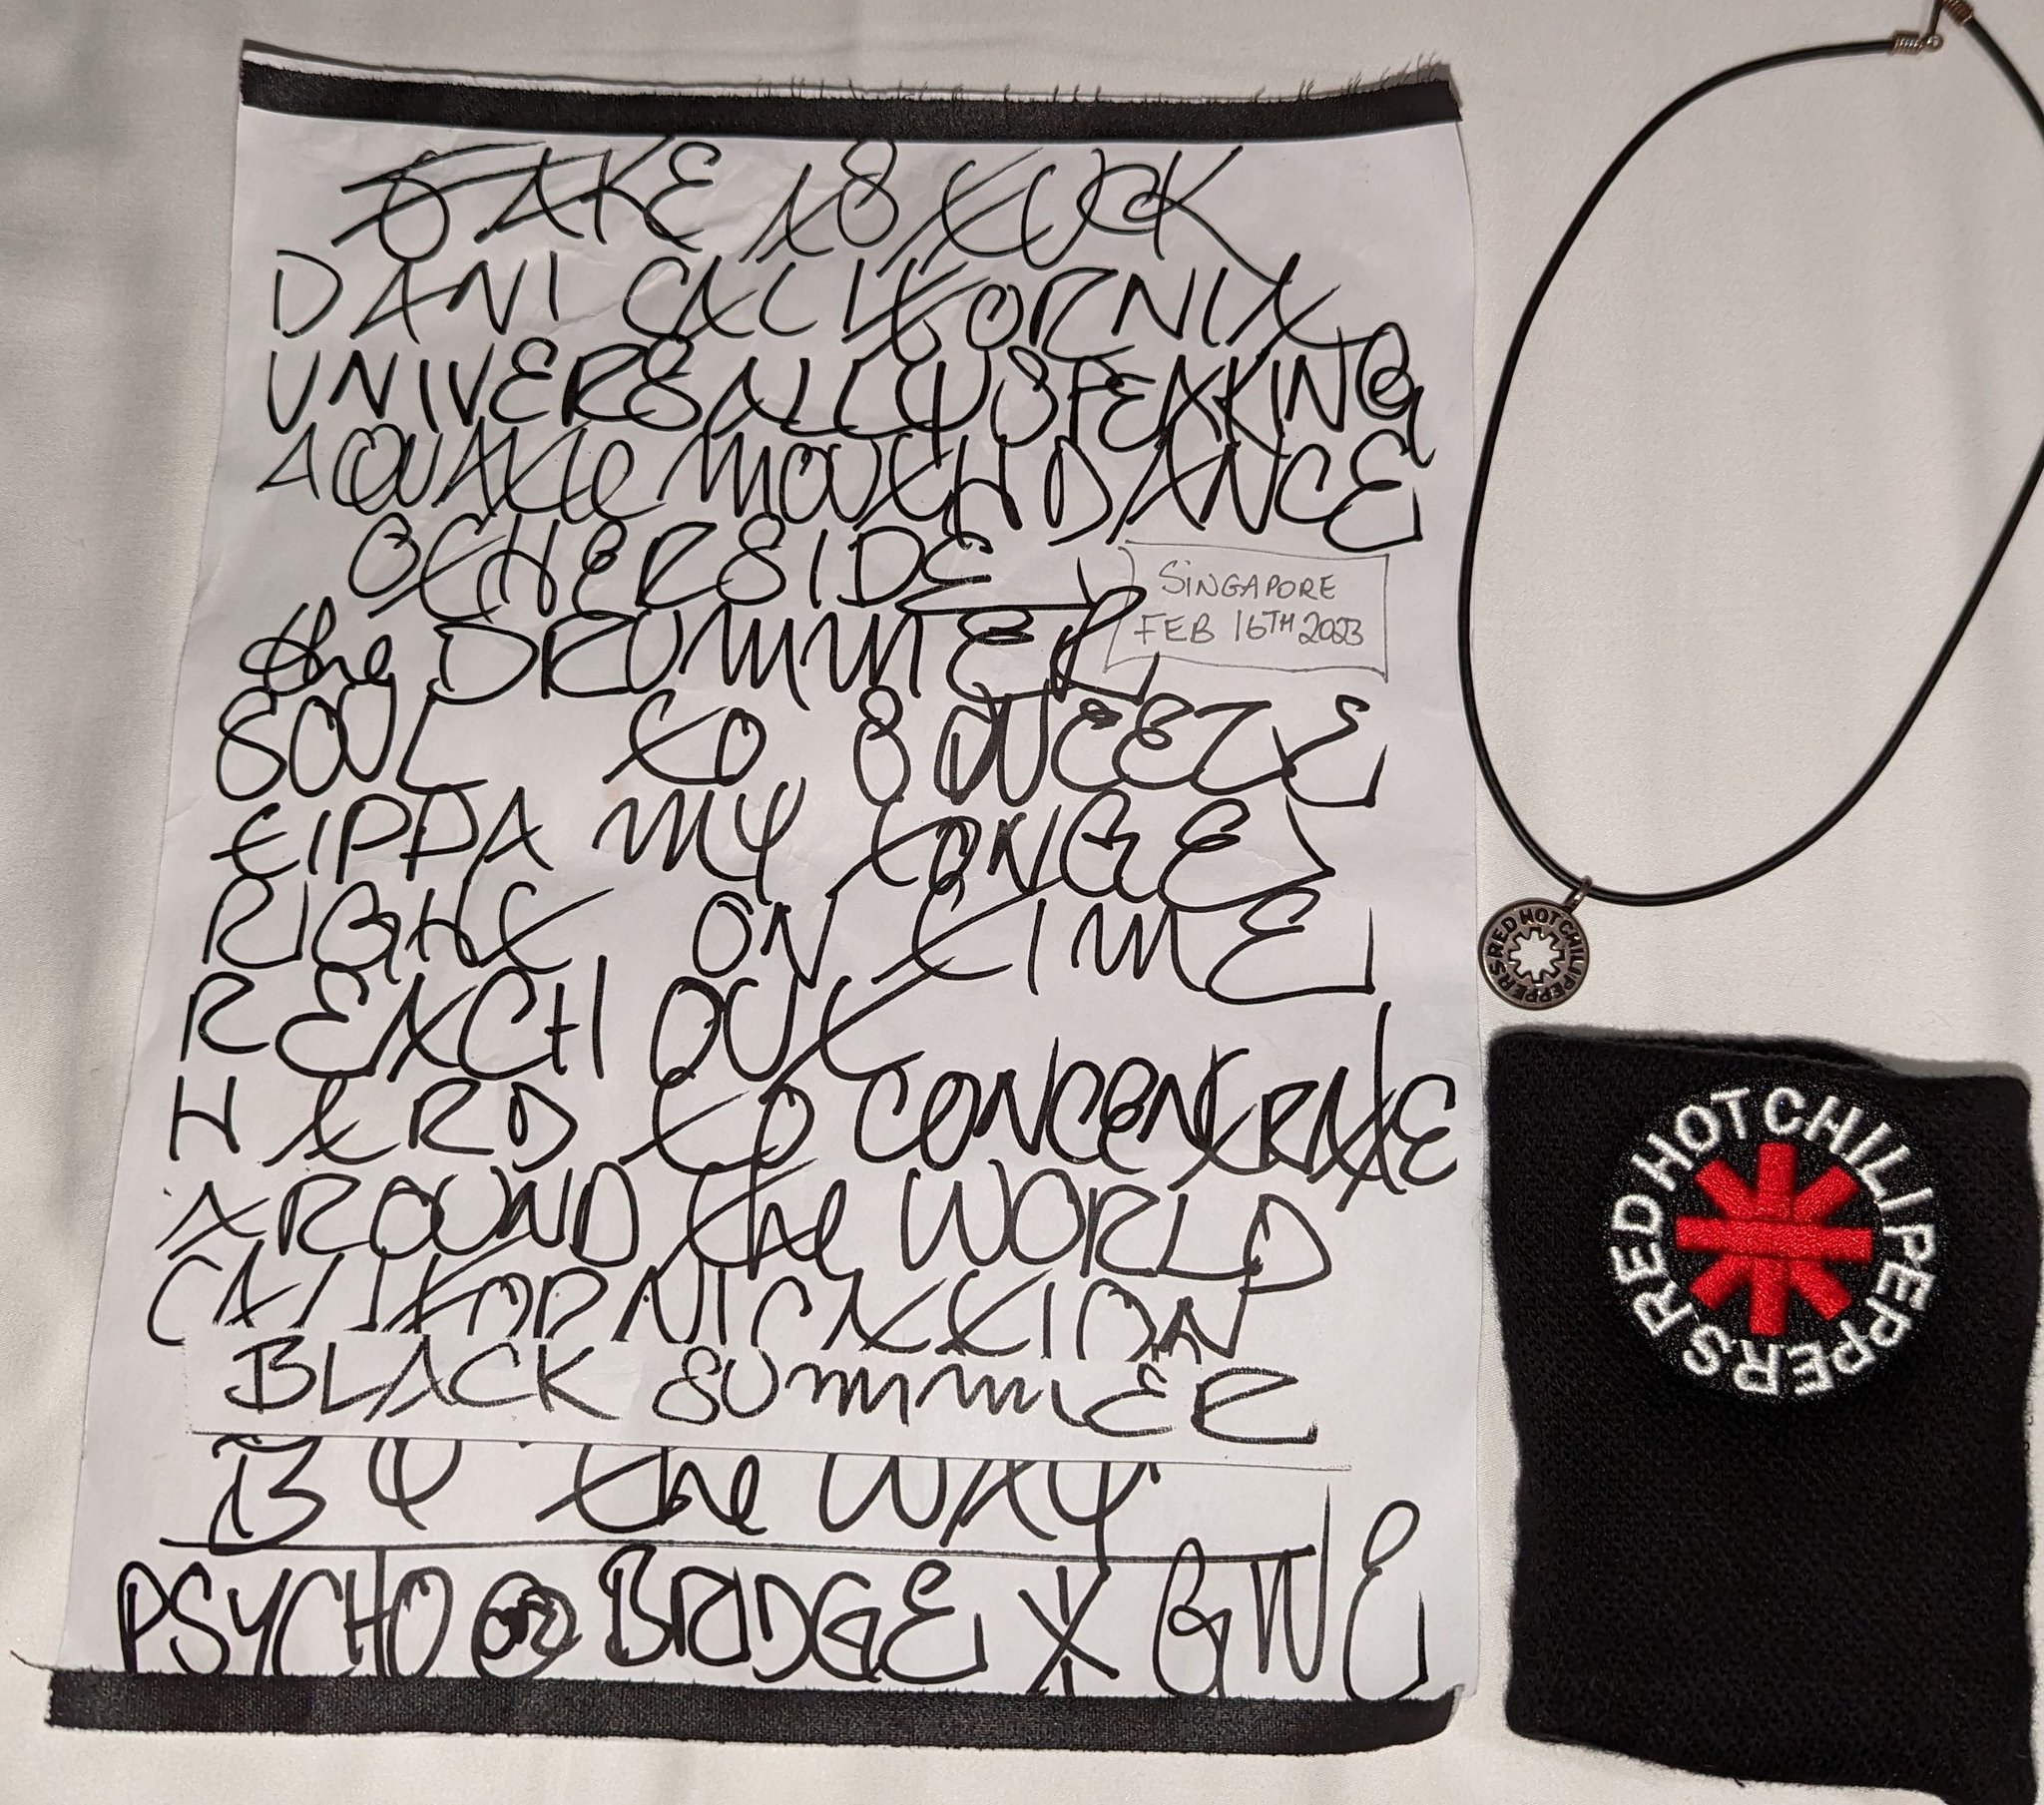 FAKE AS FUCK
DANI CALIFORNIA
UNIVERSALLY SPEAKING
AQUATIC MOUTH DANCE
OTHERSIDE
SINGAPORE
FEB 16TH 2023
the DRUMMER
SOUL TO SQUEEZE
TIPPA MY TONGUE
RIGHT ON TIME
REACH OUT
HARD TO CONCENTRATE
AROUND the WORLD
CALIFORNICATION
BLACK SUMMER
BY the WAY
PSYCHO BRIDGE GIVE
RED HOT CHILI PEPPERS
RED HOT CHILI PEPPERS